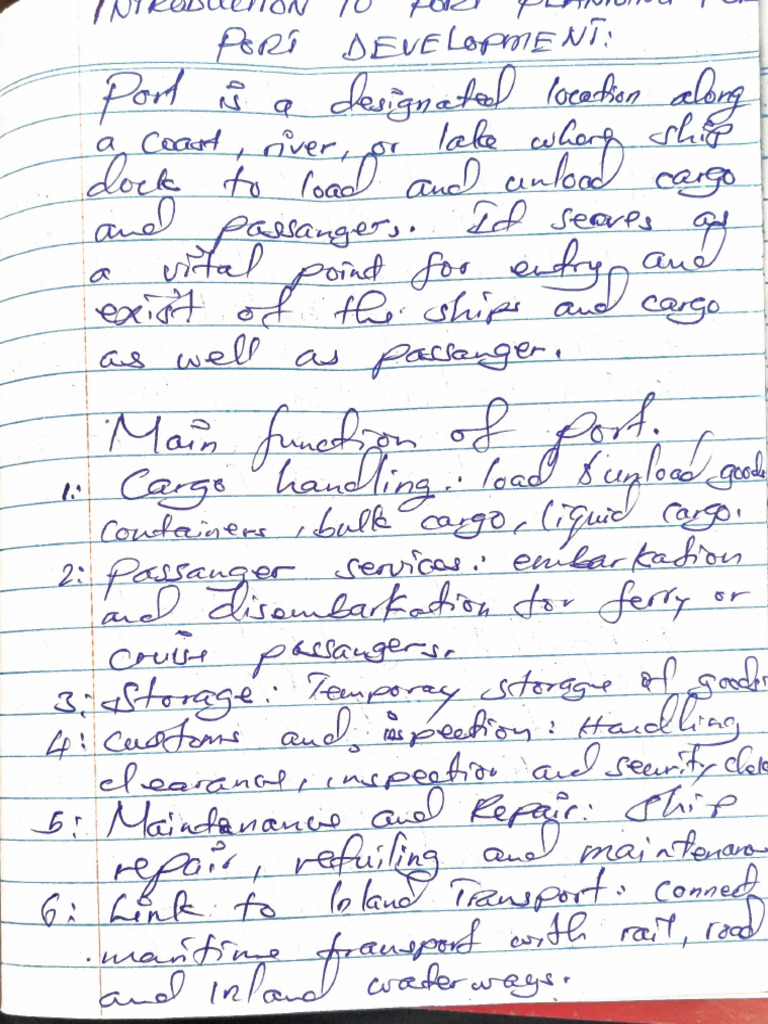 INTRODUCTION TO PORT PLANNING FOR
PORT DEVELOPMENT:
Port is a designated location along
a coast, river, or lake where ship
dock to load and unload cargo
and passangers. It serves as
a vital point for entry and
exist of the ships and cargo
as well as passanger.
Main function of port.
1: Cargo handling: load & unload goods
containers, bulk cargo, liquid cargo.
2: Passanger services: embarkation
and disembarkation for ferry or
cruise passangers.
3: Storage: Temporay storage of goods
4: Customs and inspection: Handling
clearance, inspection and security
5: Maintanance and Repair: Ship
repair, refuiling and maintenance
6: Link to Inland Transport: connect
maritime transport with rail, road
and inland waterways.